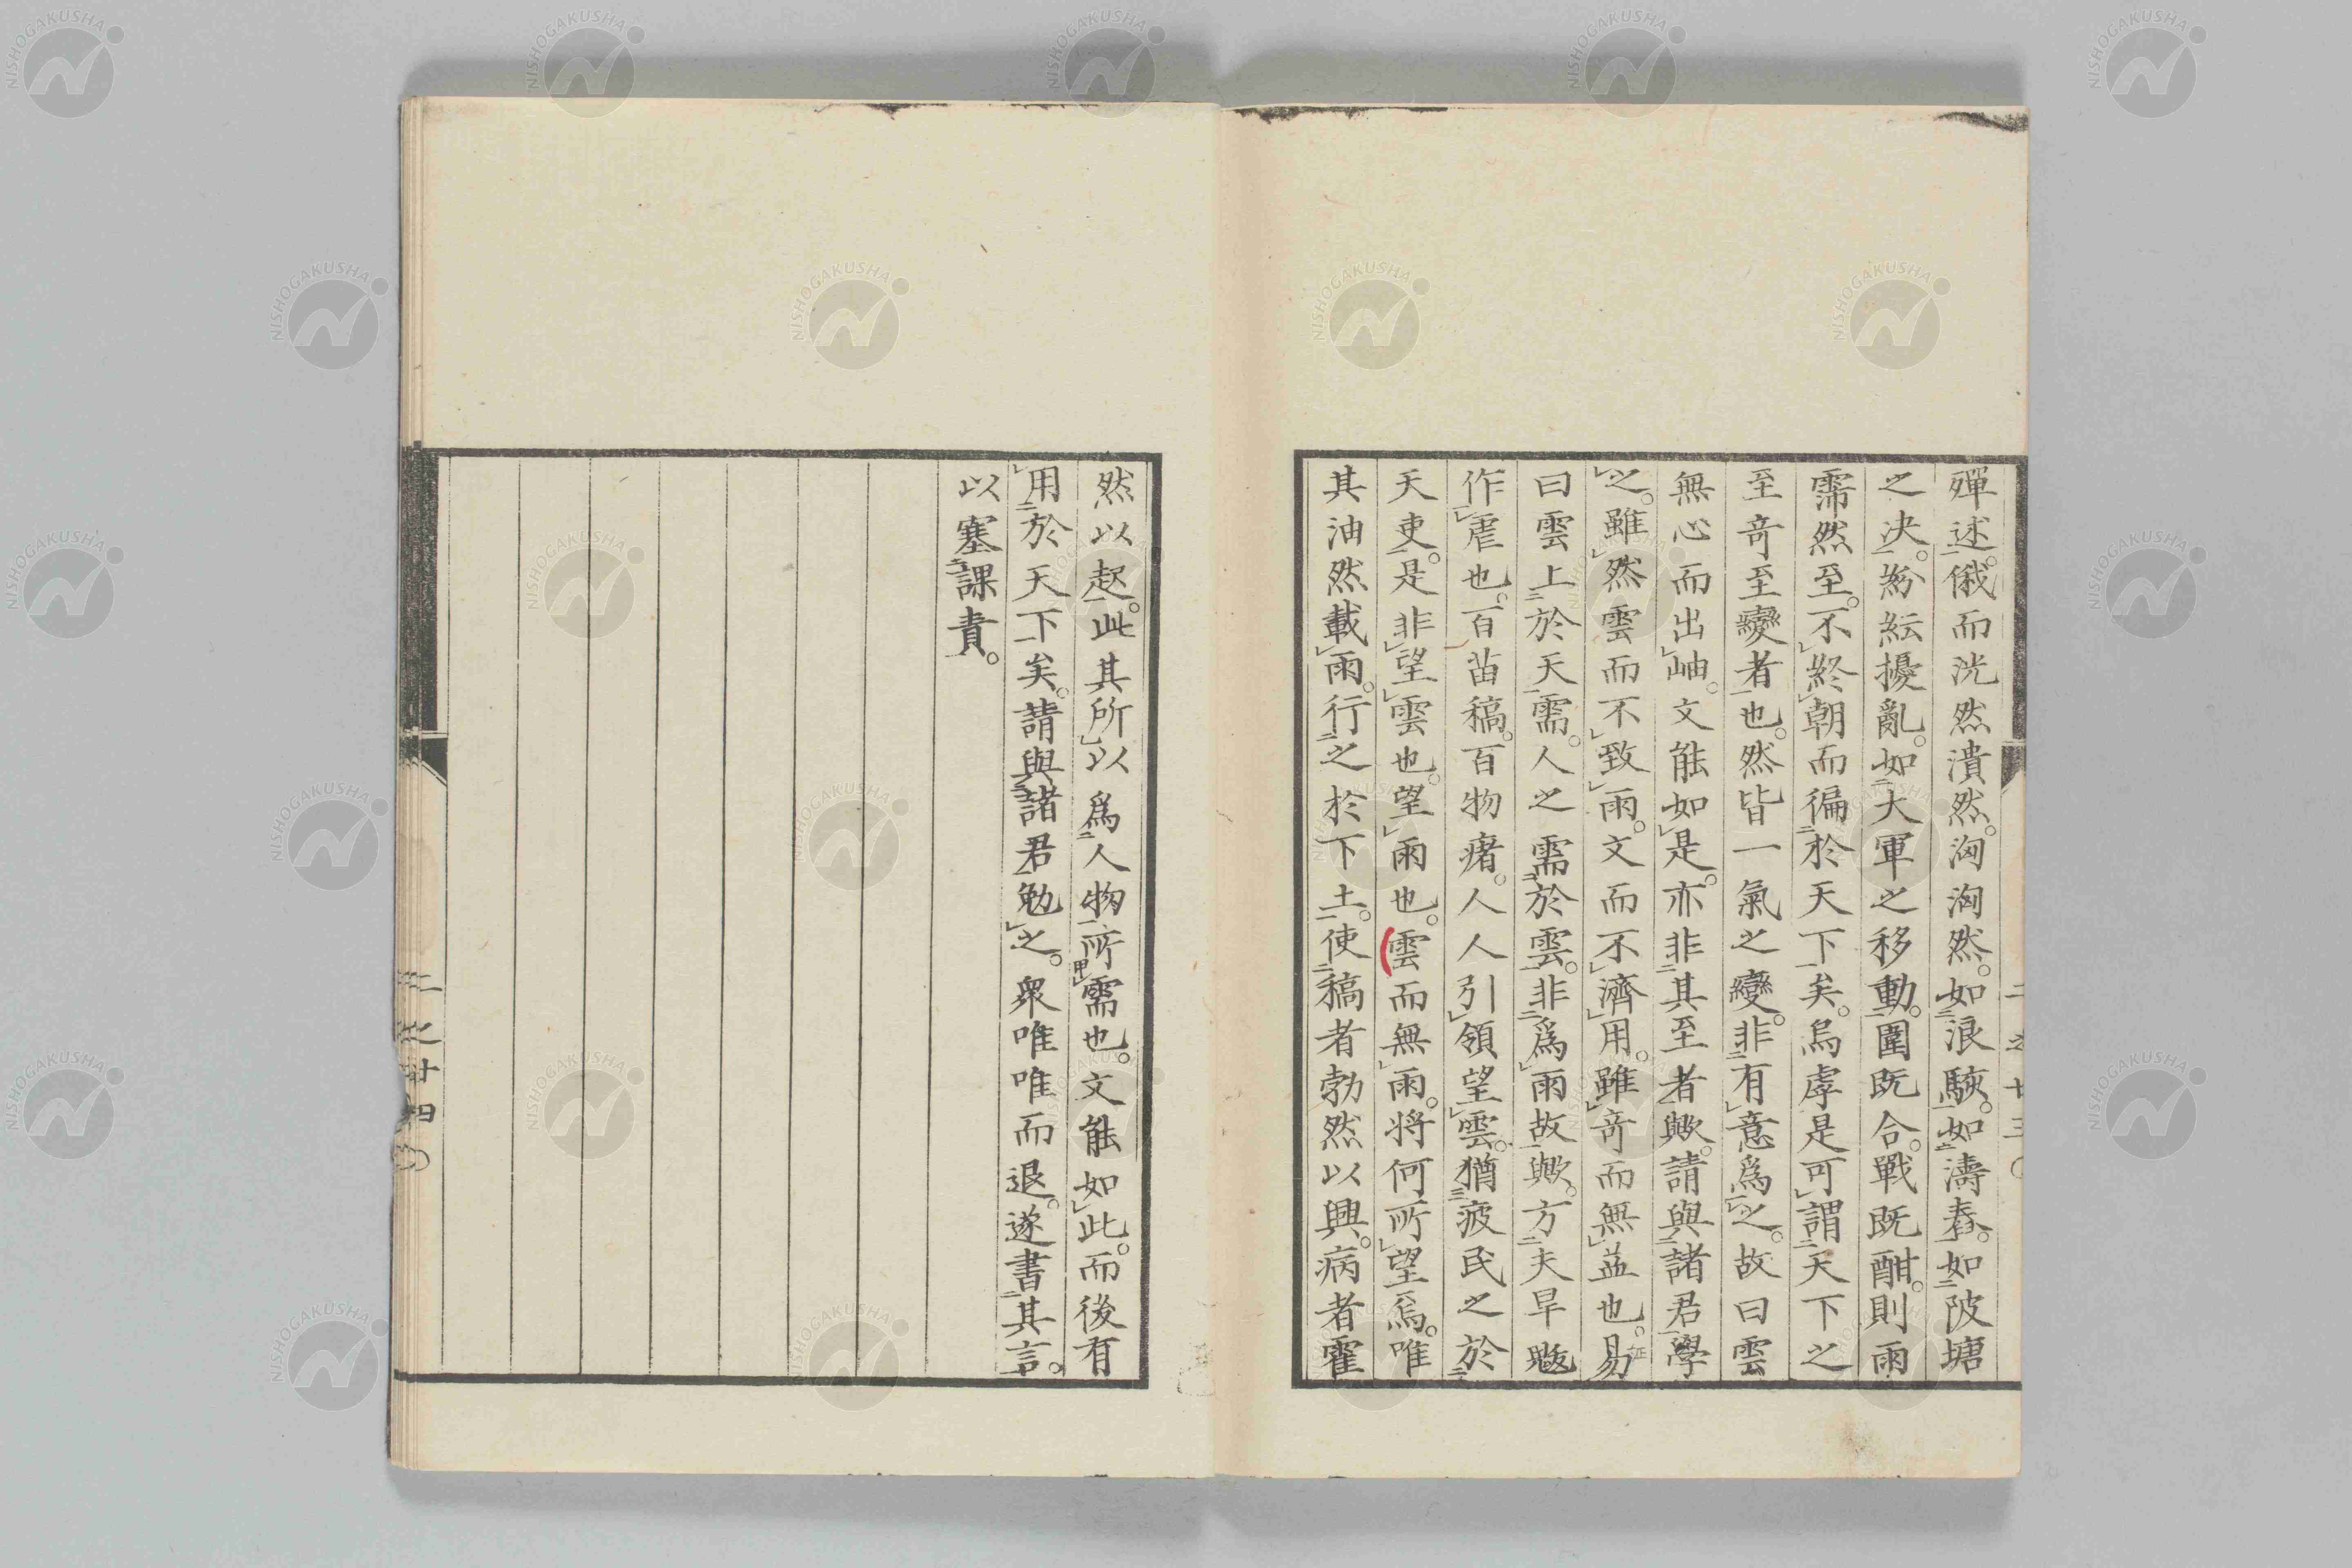 殫述。俄而洸然潰然。洶洶然。如浪駭。如濤舂。如陂塘
之决。紛紜擾亂。如大軍之移動。圍既合。戰既酣。則雨
霈然至。不終朝而徧於天下矣。烏虖是可謂天下之
至奇至變者也。然皆一氣之變。非有意爲之。故曰雲
無心而出岫。文能如是。亦非其至者歟。請與諸君學
之。雖然雲而不致雨。文而不濟用。雖奇而無益也。易
曰雲上於天需。人之需於雲。非爲雨故歟。方夫旱魃
作虐也。百苗稿。百物瘏。人人引領望雲。猶疲民之於
天吏。是非望雲也。望雨也。雲而無雨。將何所望焉。唯
其油然載雨。行之於下土。使稿者勃然以興。病者霍
二之廿三
然以起。此其所以爲人物所需也。文能如此。而後有
用於天下矣。請與諸君勉之。衆唯唯而退。遂書其言。
以塞課責。
二之廿四
NISHOGAKUSHA